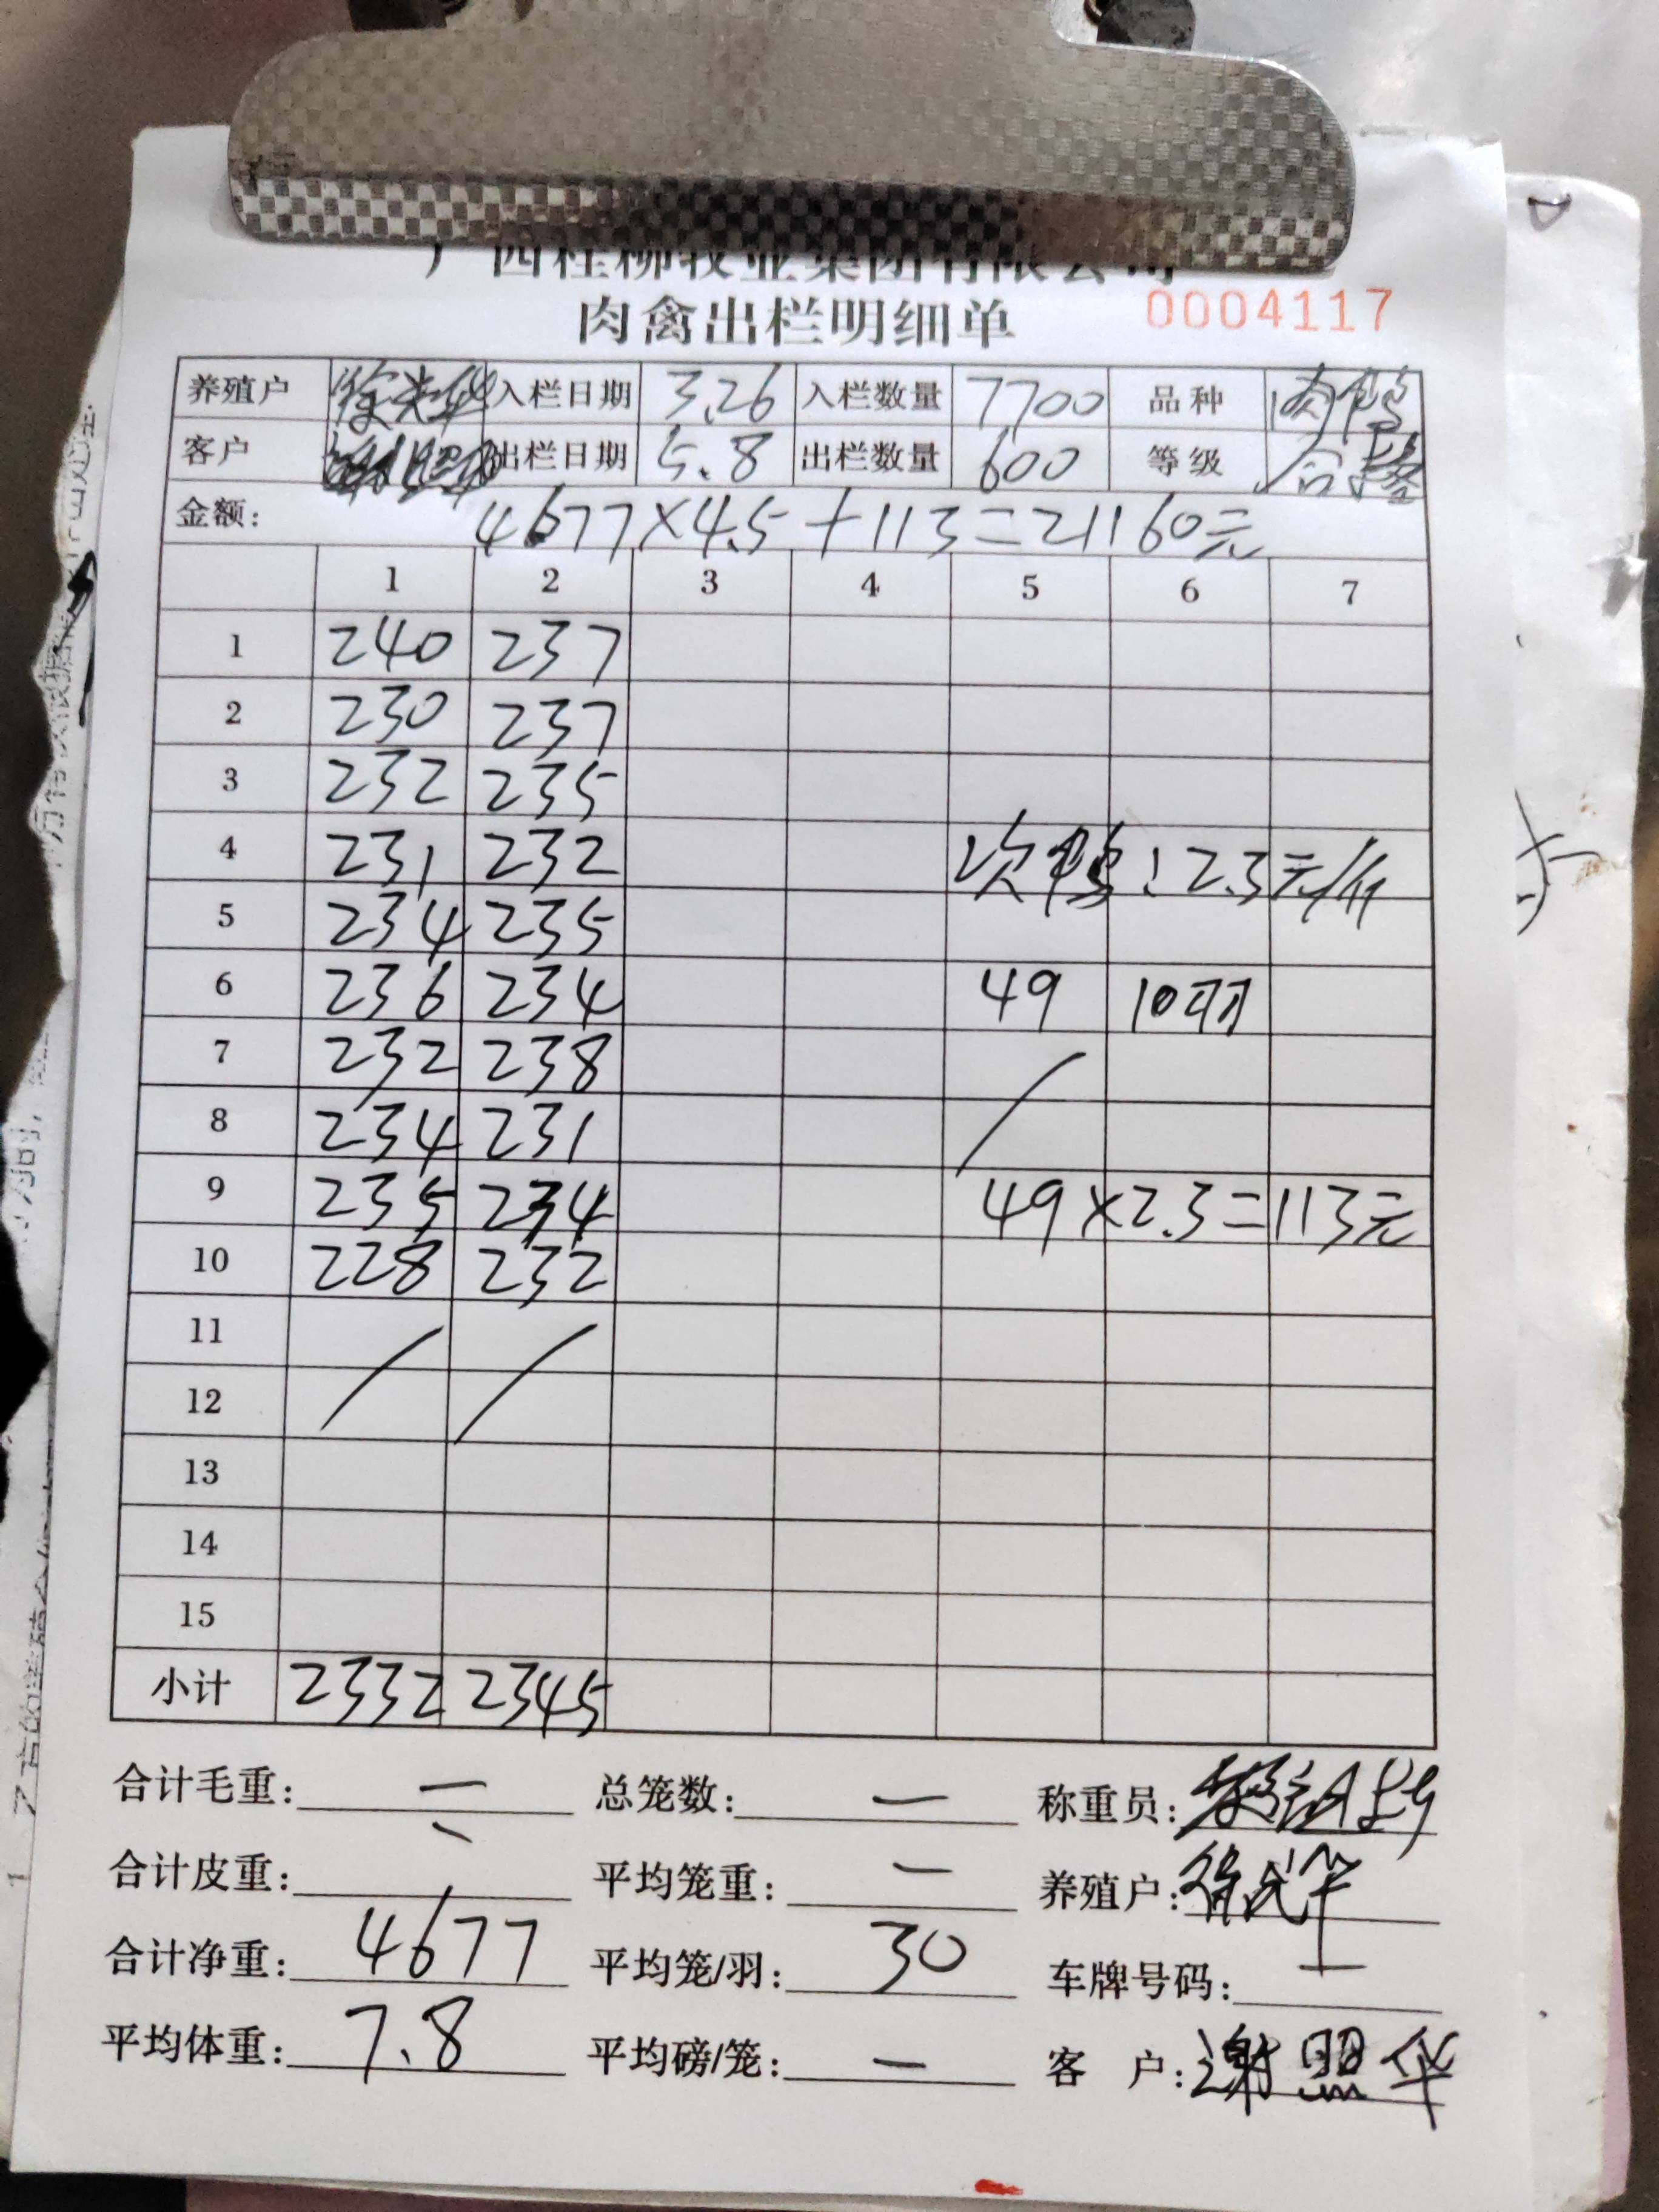 广西桂柳牧业集团有限公司
肉禽出栏明细单 0004117
养殖户 徐光华 入栏日期 3.26 入栏数量 7700 品种 肉鸭
客户 出栏日期 5.8 出栏数量 600 等级 合格
金额: 4677×4.5+113=21160元
1 2 3 4 5 6 7
1 240 237
2 230 237
3 232 235
4 231 232 次鸭:2.3元/斤
5 234 235
6 236 234 49 10羽
7 232 238
8 234 231
9 235 234 49×2.3=113元
10 228 232
11
12
13
14
15
小计 2332 2345
合计毛重: — 总笼数: — 称重员:
合计皮重: — 平均笼重: — 养殖户: 徐光华
合计净重: 4677 平均笼/羽: 30 车牌号码: —
平均体重: 7.8 平均磅/笼: — 客 户: 谢照华